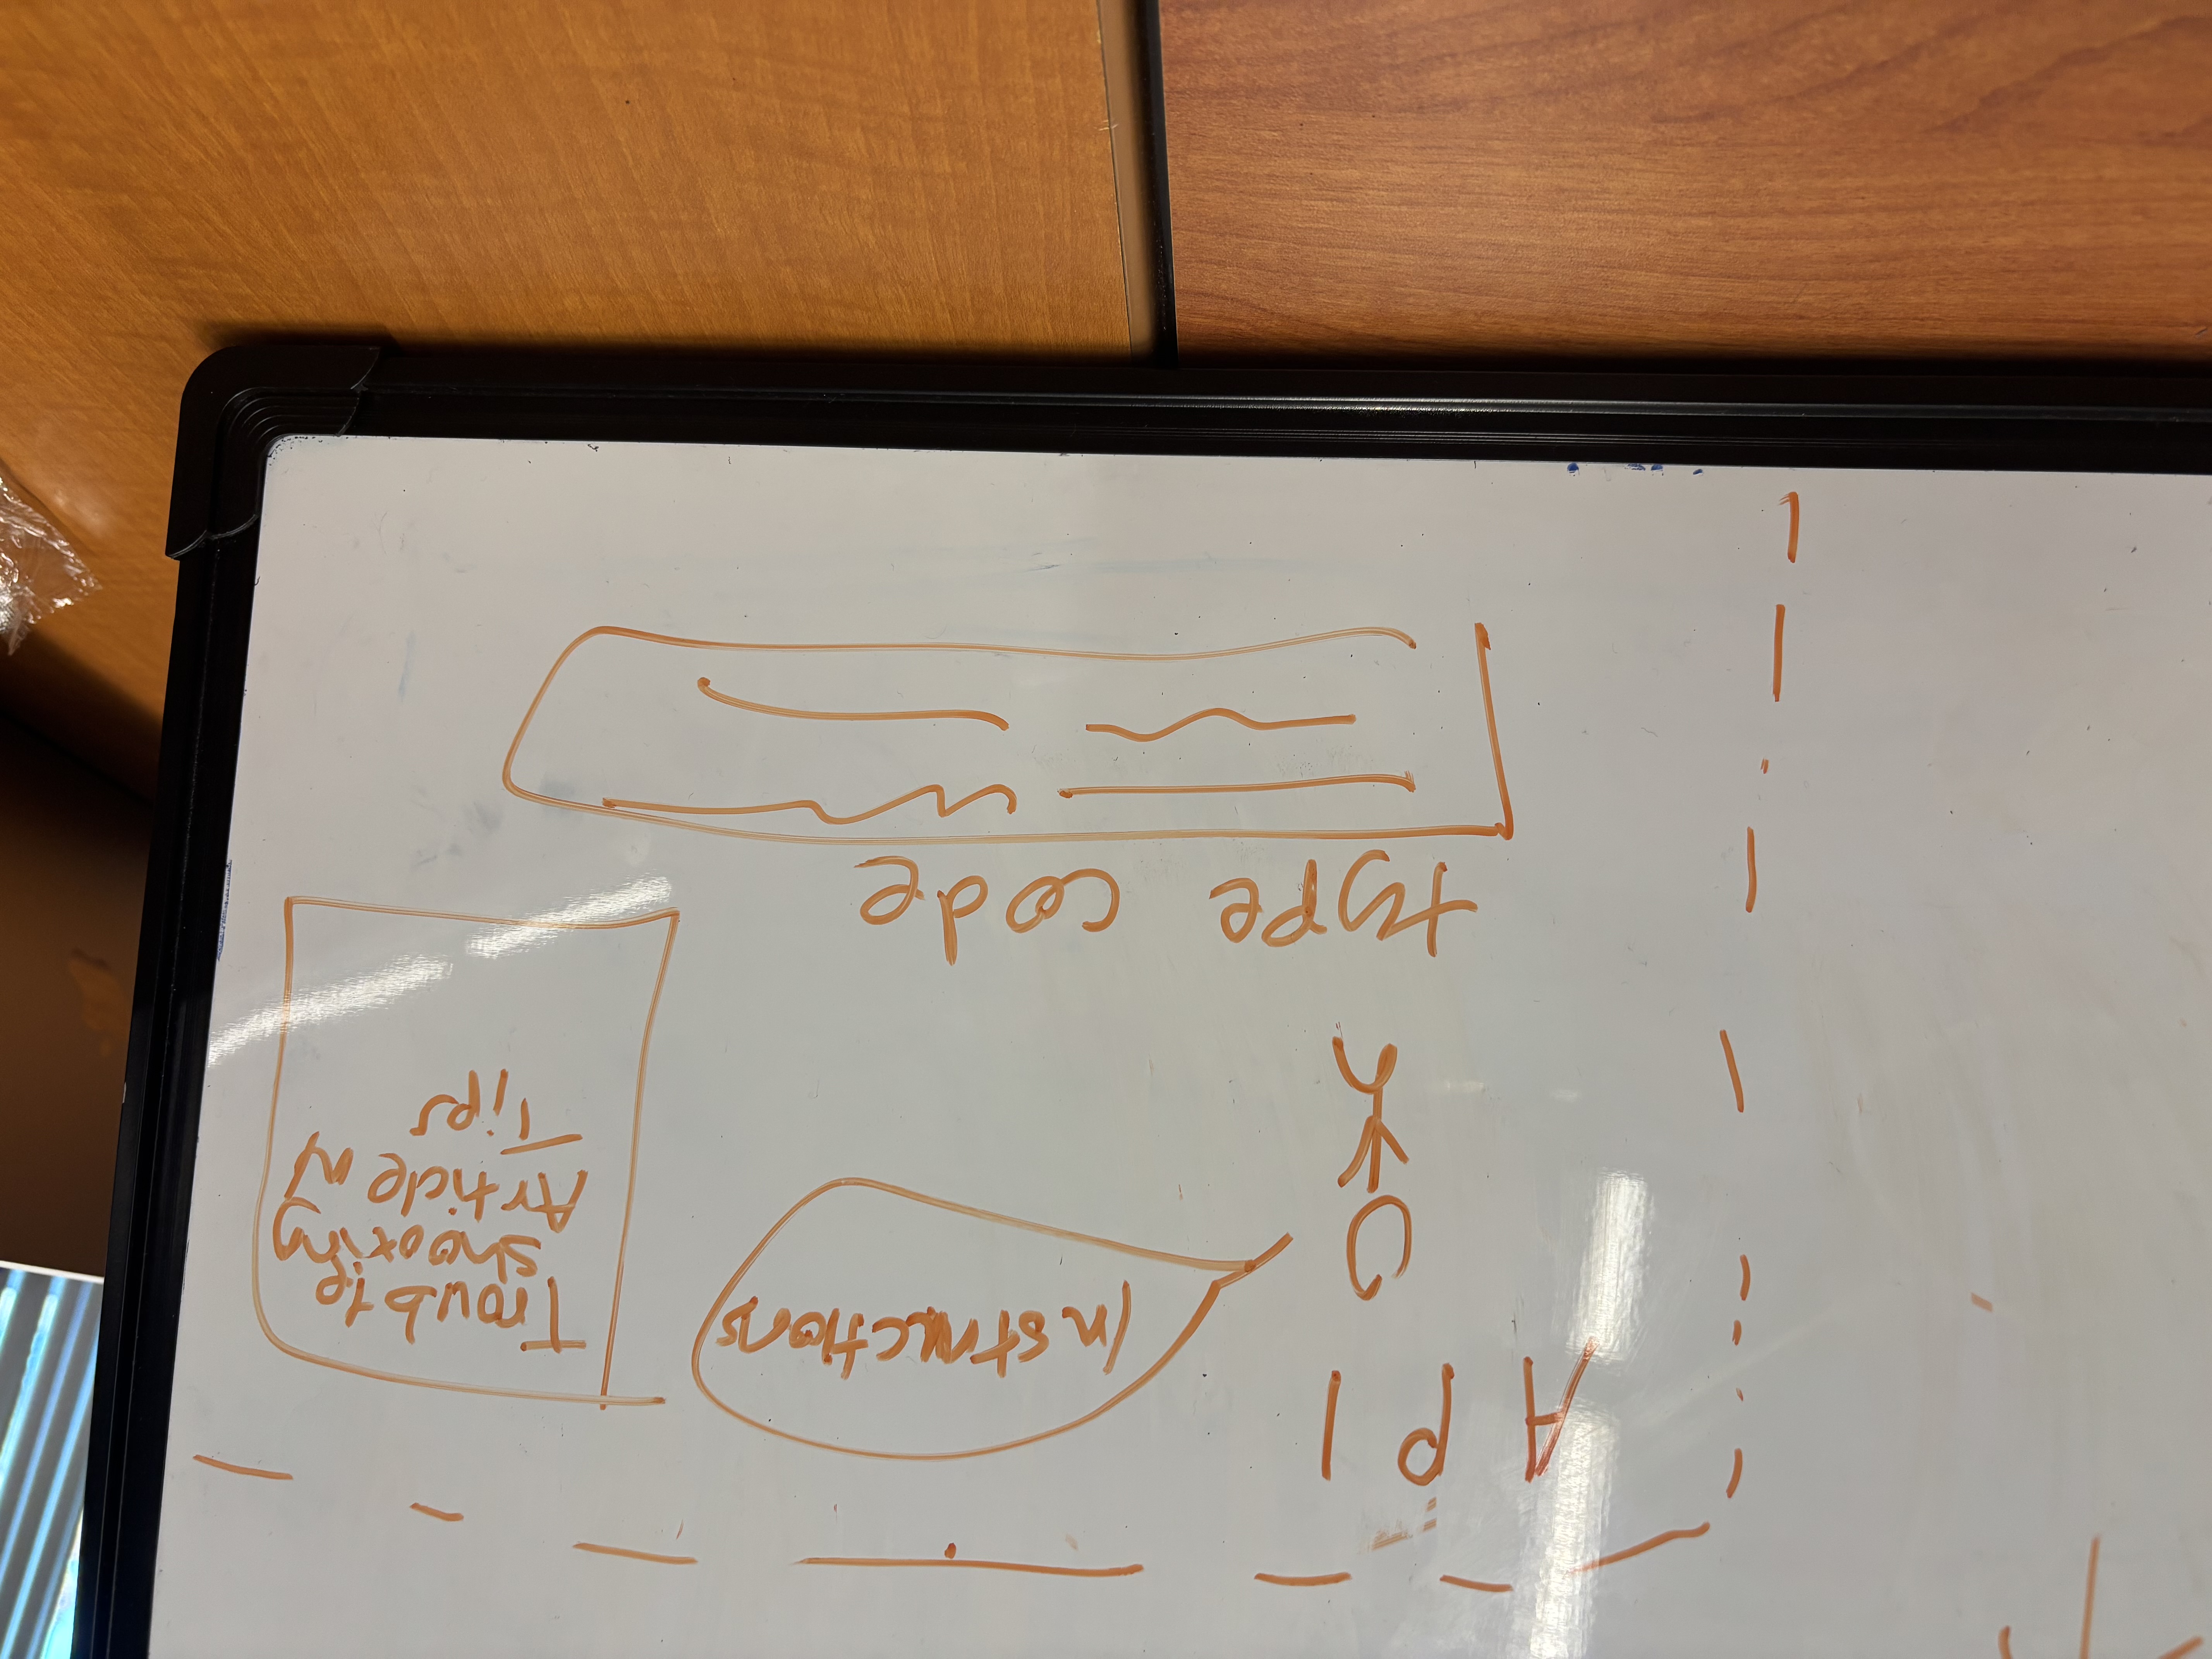 API
Instructions
Trouble
shooting
Article w/
Tips
type code